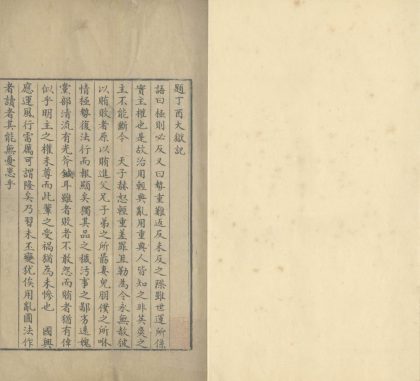 題丁酉大獄記
語曰極則必反又曰勢重難返反未反之際難世運所係
實主權也是故治用輕典亂用重典人皆知之非英爽之
主不能斷今　天子赫怒輕重差罪且勒為今永無敢彼
以賄敗者原以賄進父兄子弟之所勗妻兒朋僕之所咻
情極勢復法行而報顯矣獨其品之穢汚事之鄙劣遠媿
黨部清流有光斧鑕耳雖者敗者不敢怨而賄者猶有倖
似乎明主之權未尊而此輩之受禍猶為未慘也　國興
應運風行雷厲可謂隆矣乃習未丕變猶俟用亂國法作
者讀者其能無憂恚乎